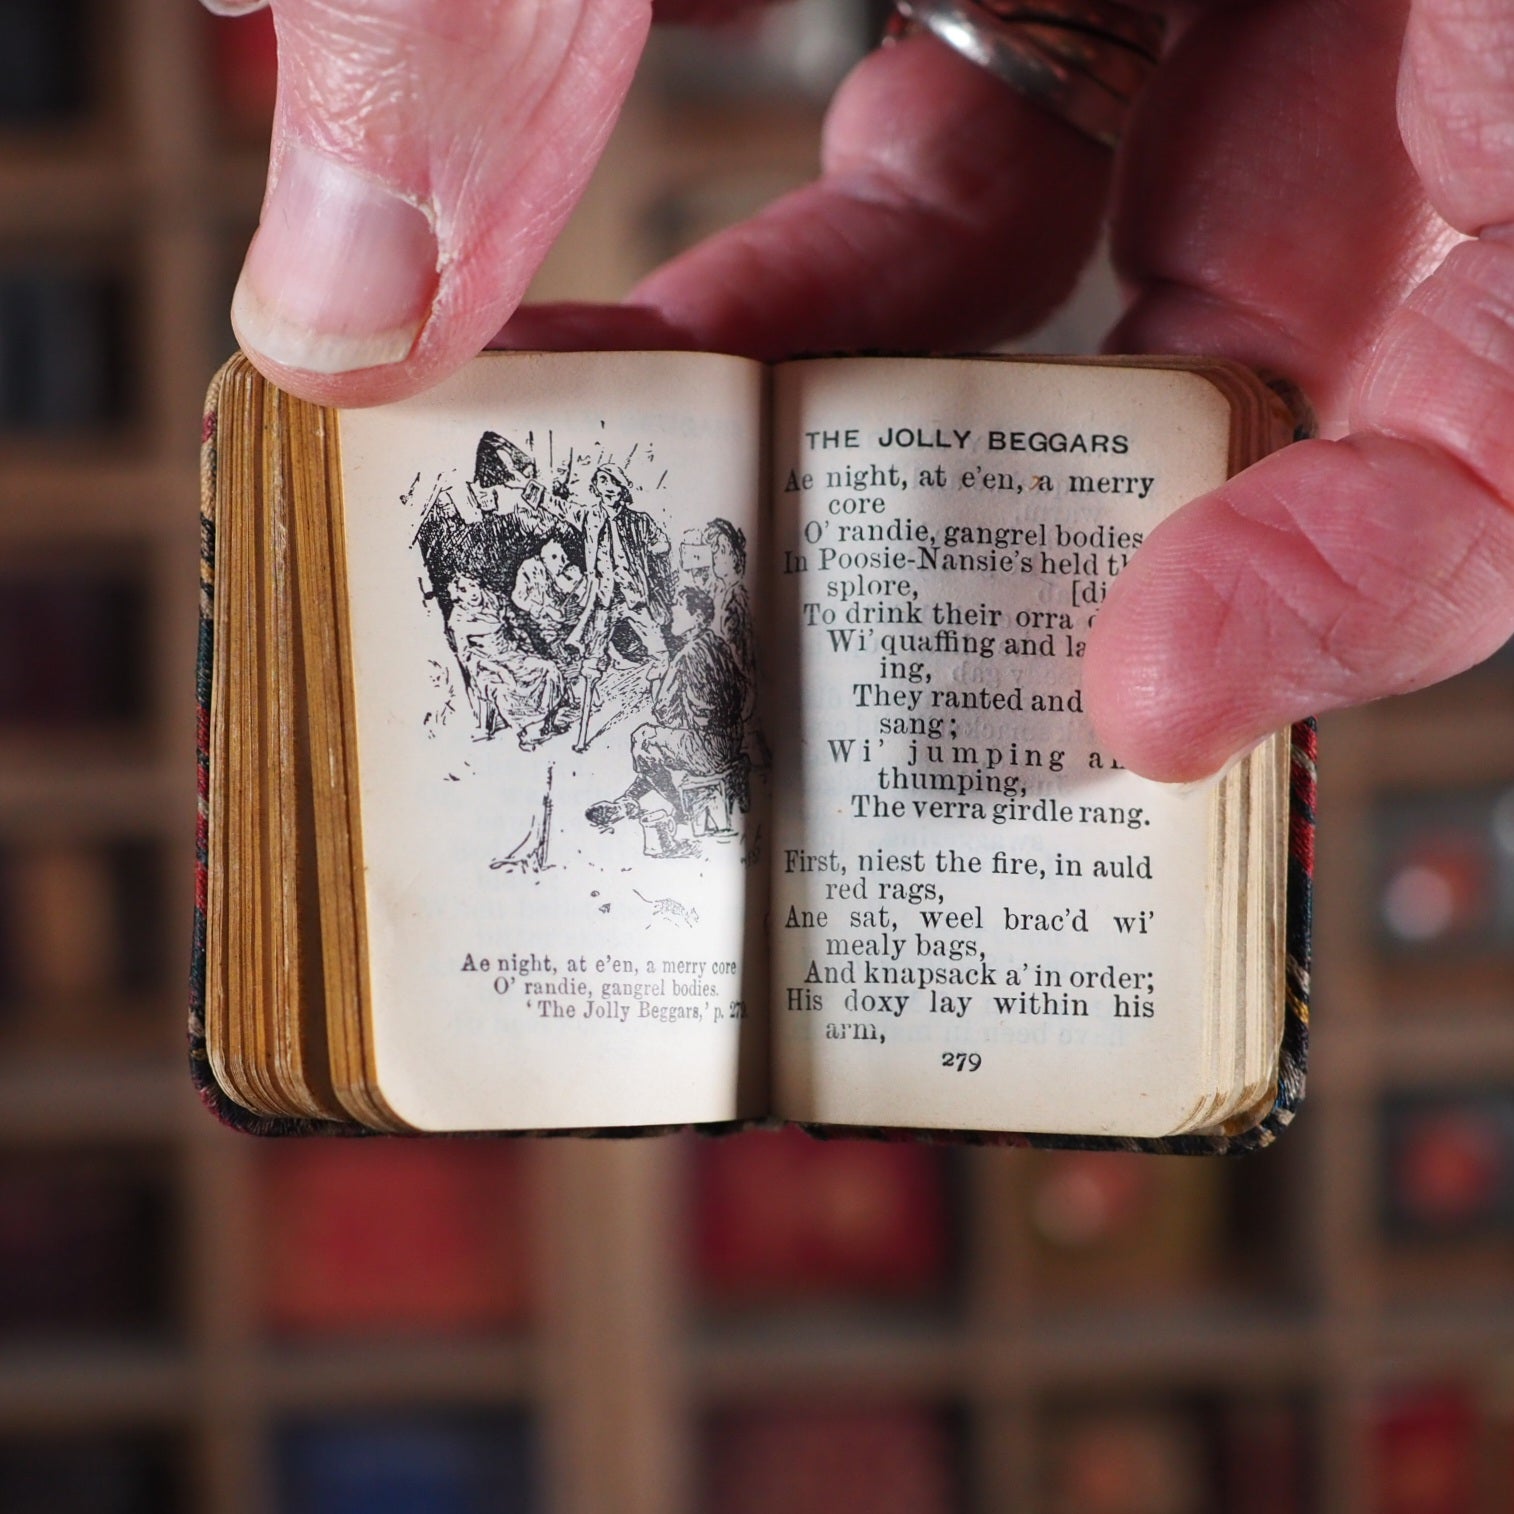 Ae night, at e'en, a merry core
O' randie, gangrel bodies.
'The Jolly Beggars,' p. 279.
THE JOLLY BEGGARS
Ae night, at e'en, a merry
core
O' randie, gangrel bodies
In Poosie-Nansie's held
splore,
To drink their orra
Wi' quaffing and
ing,
They ranted and
sang;
Wi' jumping
thumping,
The verra girdle rang.
First, niest the fire, in auld
red rags,
Ane sat, weel brac'd wi'
mealy bags,
And knapsack a' in order;
His doxy lay within his
arm,
279